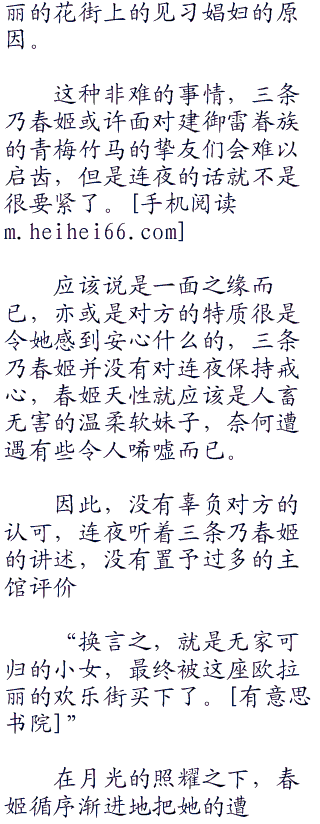 丽的花街上的见习娼妇的原
因。
这种非难的事情，三条
乃春姬或许面对建御雷眷族
的青梅竹马的挚友们会难以
启齿，但是连夜的话就不是
很要紧了。[手机阅读
m.heihei66.com]
应该说是一面之缘而
已，亦或是对方的特质很是
令她感到安心什么的，三条
乃春姬并没有对连夜保持戒
心，春姬天性就应该是人畜
无害的温柔软妹子，奈何遭
遇有些令人唏嘘而已。
因此，没有辜负对方的
认可，连夜听着三条乃春姬
的讲述，没有置予过多的主
馆评价
“换言之，就是无家可
归的小女，最终被这座欧拉
丽的欢乐街买下了。[有意思
书院]”
在月光的照耀之下，春
姬循序渐进地把她的遭